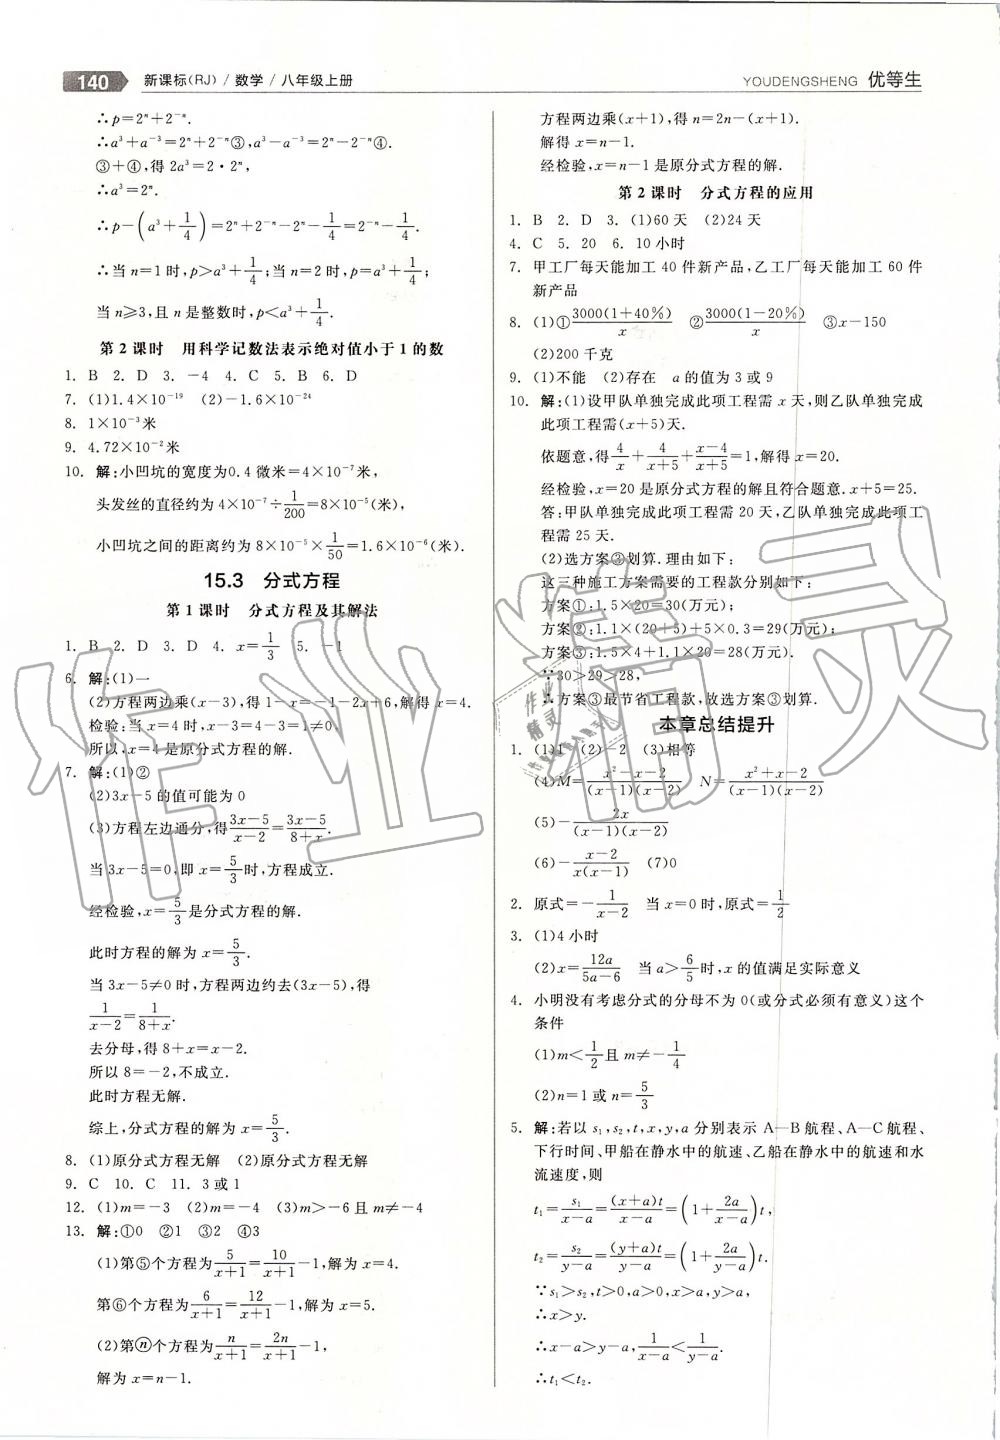 140 新课标(RJ) / 数学 / 八年级上册
YOUDENGSHENG 优等生
∴p=2ⁿ+2⁻ⁿ.
∴a³+a⁻³=2ⁿ+2⁻ⁿ③,a³-a⁻³=2ⁿ-2⁻ⁿ④.
③+④,得 2a³=2·2ⁿ,
∴a³=2ⁿ.
∴p-(a³+1/4)=2ⁿ+2⁻ⁿ-2ⁿ-1/4=2⁻ⁿ-1/4.
∴当 n=1 时,p>a³+1/4;当 n=2 时,p=a³+1/4;
当 n≥3,且 n 是整数时,p<a³+1/4.
第 2 课时 用科学记数法表示绝对值小于 1 的数
1. B 2. D 3. -4 4. C 5. B 6. D
7. (1)1.4×10⁻¹⁹ (2)-1.6×10⁻²⁴
8. 1×10⁻³米
9. 4.72×10⁻²米
10. 解:小凹坑的宽度为0.4 微米=4×10⁻⁷米,
头发丝的直径约为 4×10⁻⁷÷1/200=8×10⁻⁵(米),
小凹坑之间的距离约为 8×10⁻⁵×1/50=1.6×10⁻⁶(米).
15.3 分式方程
第 1 课时 分式方程及其解法
1. B 2. D 3. D 4. x=1/3 5. -1
6. 解:(1)一
(2)方程两边乘(x-3),得 1-x=-1-2x+6,解得 x=4.
检验:当 x=4 时,x-3=4-3=1≠0,
所以,x=4 是原分式方程的解.
7. 解:(1)②
(2)3x-5 的值可能为 0
(3)方程左边通分,得(3x-5)/(x-2)=(3x-5)/(8+x).
当 3x-5=0,即 x=5/3时,方程成立.
经检验,x=5/3是分式方程的解.
此时方程的解为 x=5/3.
当 3x-5≠0 时,方程两边约去(3x-5),得
1/(x-2)=1/(8+x).
去分母,得 8+x=x-2.
所以 8=-2,不成立.
此时方程无解.
综上,分式方程的解为 x=5/3.
8. (1)原分式方程无解 (2)原分式方程无解
9. C 10. C 11. 3 或 1
12. (1)m=-3 (2)m=-4 (3)m>-6 且 m≠-4
13. 解:①0 ②1 ③2 ④3
(1)第⑤个方程为5/(x+1)=10/(x+1)-1,解为 x=4.
第⑥个方程为6/(x+1)=12/(x+1)-1,解为 x=5.
(2)第ⓝ个方程为n/(x+1)=2n/(x+1)-1,
解为 x=n-1.
方程两边乘(x+1),得 n=2n-(x+1).
解得 x=n-1.
经检验,x=n-1 是原分式方程的解.
第 2 课时 分式方程的应用
1. B 2. D 3. (1)60 天 (2)24 天
4. C 5. 20 6. 10 小时
7. 甲工厂每天能加工 40 件新产品,乙工厂每天能加工 60 件
新产品
8. (1)①3000(1+40%)/x ②3000(1-20%)/x ③x-150
(2)200 千克
9. (1)不能 (2)存在 a 的值为 3 或 9
10. 解:(1)设甲队单独完成此项工程需 x 天,则乙队单独完成
此项工程需(x+5)天.
依题意,得4/x+4/(x+5)+(x-4)/(x+5)=1,解得 x=20.
经检验,x=20 是原分式方程的解且符合题意. x+5=25.
答:甲队单独完成此项工程需 20 天,乙队单独完成此项工
程需 25 天.
(2)选方案③划算. 理由如下:
这三种施工方案需要的工程款分别如下:
方案①:1.5×20=30(万元);
方案②:1.1×(20+5)+5×0.3=29(万元);
方案③:1.5×4+1.1×20=28(万元).
∵30>29>28,
∴方案③最节省工程款,故选方案③划算.
本章总结提升
1. (1)1 (2)-2 (3)相等
(4)M=(x²-x-2)/((x-1)(x-2)) N=(x²+x-2)/((x-1)(x-2))
(5)-2x/((x-1)(x-2))
(6)-(x-2)/(x(x-1)) (7)0
2. 原式=-1/(x-2) 当 x=0 时,原式=1/2
3. (1)4 小时
(2)x=12a/(5a-6) 当 a>6/5时,x 的值满足实际意义
4. 小明没有考虑分式的分母不为 0(或分式必须有意义)这个
条件
(1)m<1/2且 m≠-1/4
(2)n=1 或 n=5/3
5. 解:若以 s₁,s₂,t,x,y,a 分别表示 A—B 航程、A—C 航程、
下行时间、甲船在静水中的航速、乙船在静水中的航速和水
流速度,则
t₁=s₁/(x-a)=(x+a)t/(x-a)=(1+2a/(x-a))t,
t₂=s₂/(y-a)=(y+a)t/(y-a)=(1+2a/(y-a))t,
∵s₁>s₂,t>0,a>0,x>a,y>a,
∴x>y.
∴x-a>y-a,1/(x-a)<1/(y-a).
∴t₁<t₂.
作业精灵
作业
精灵